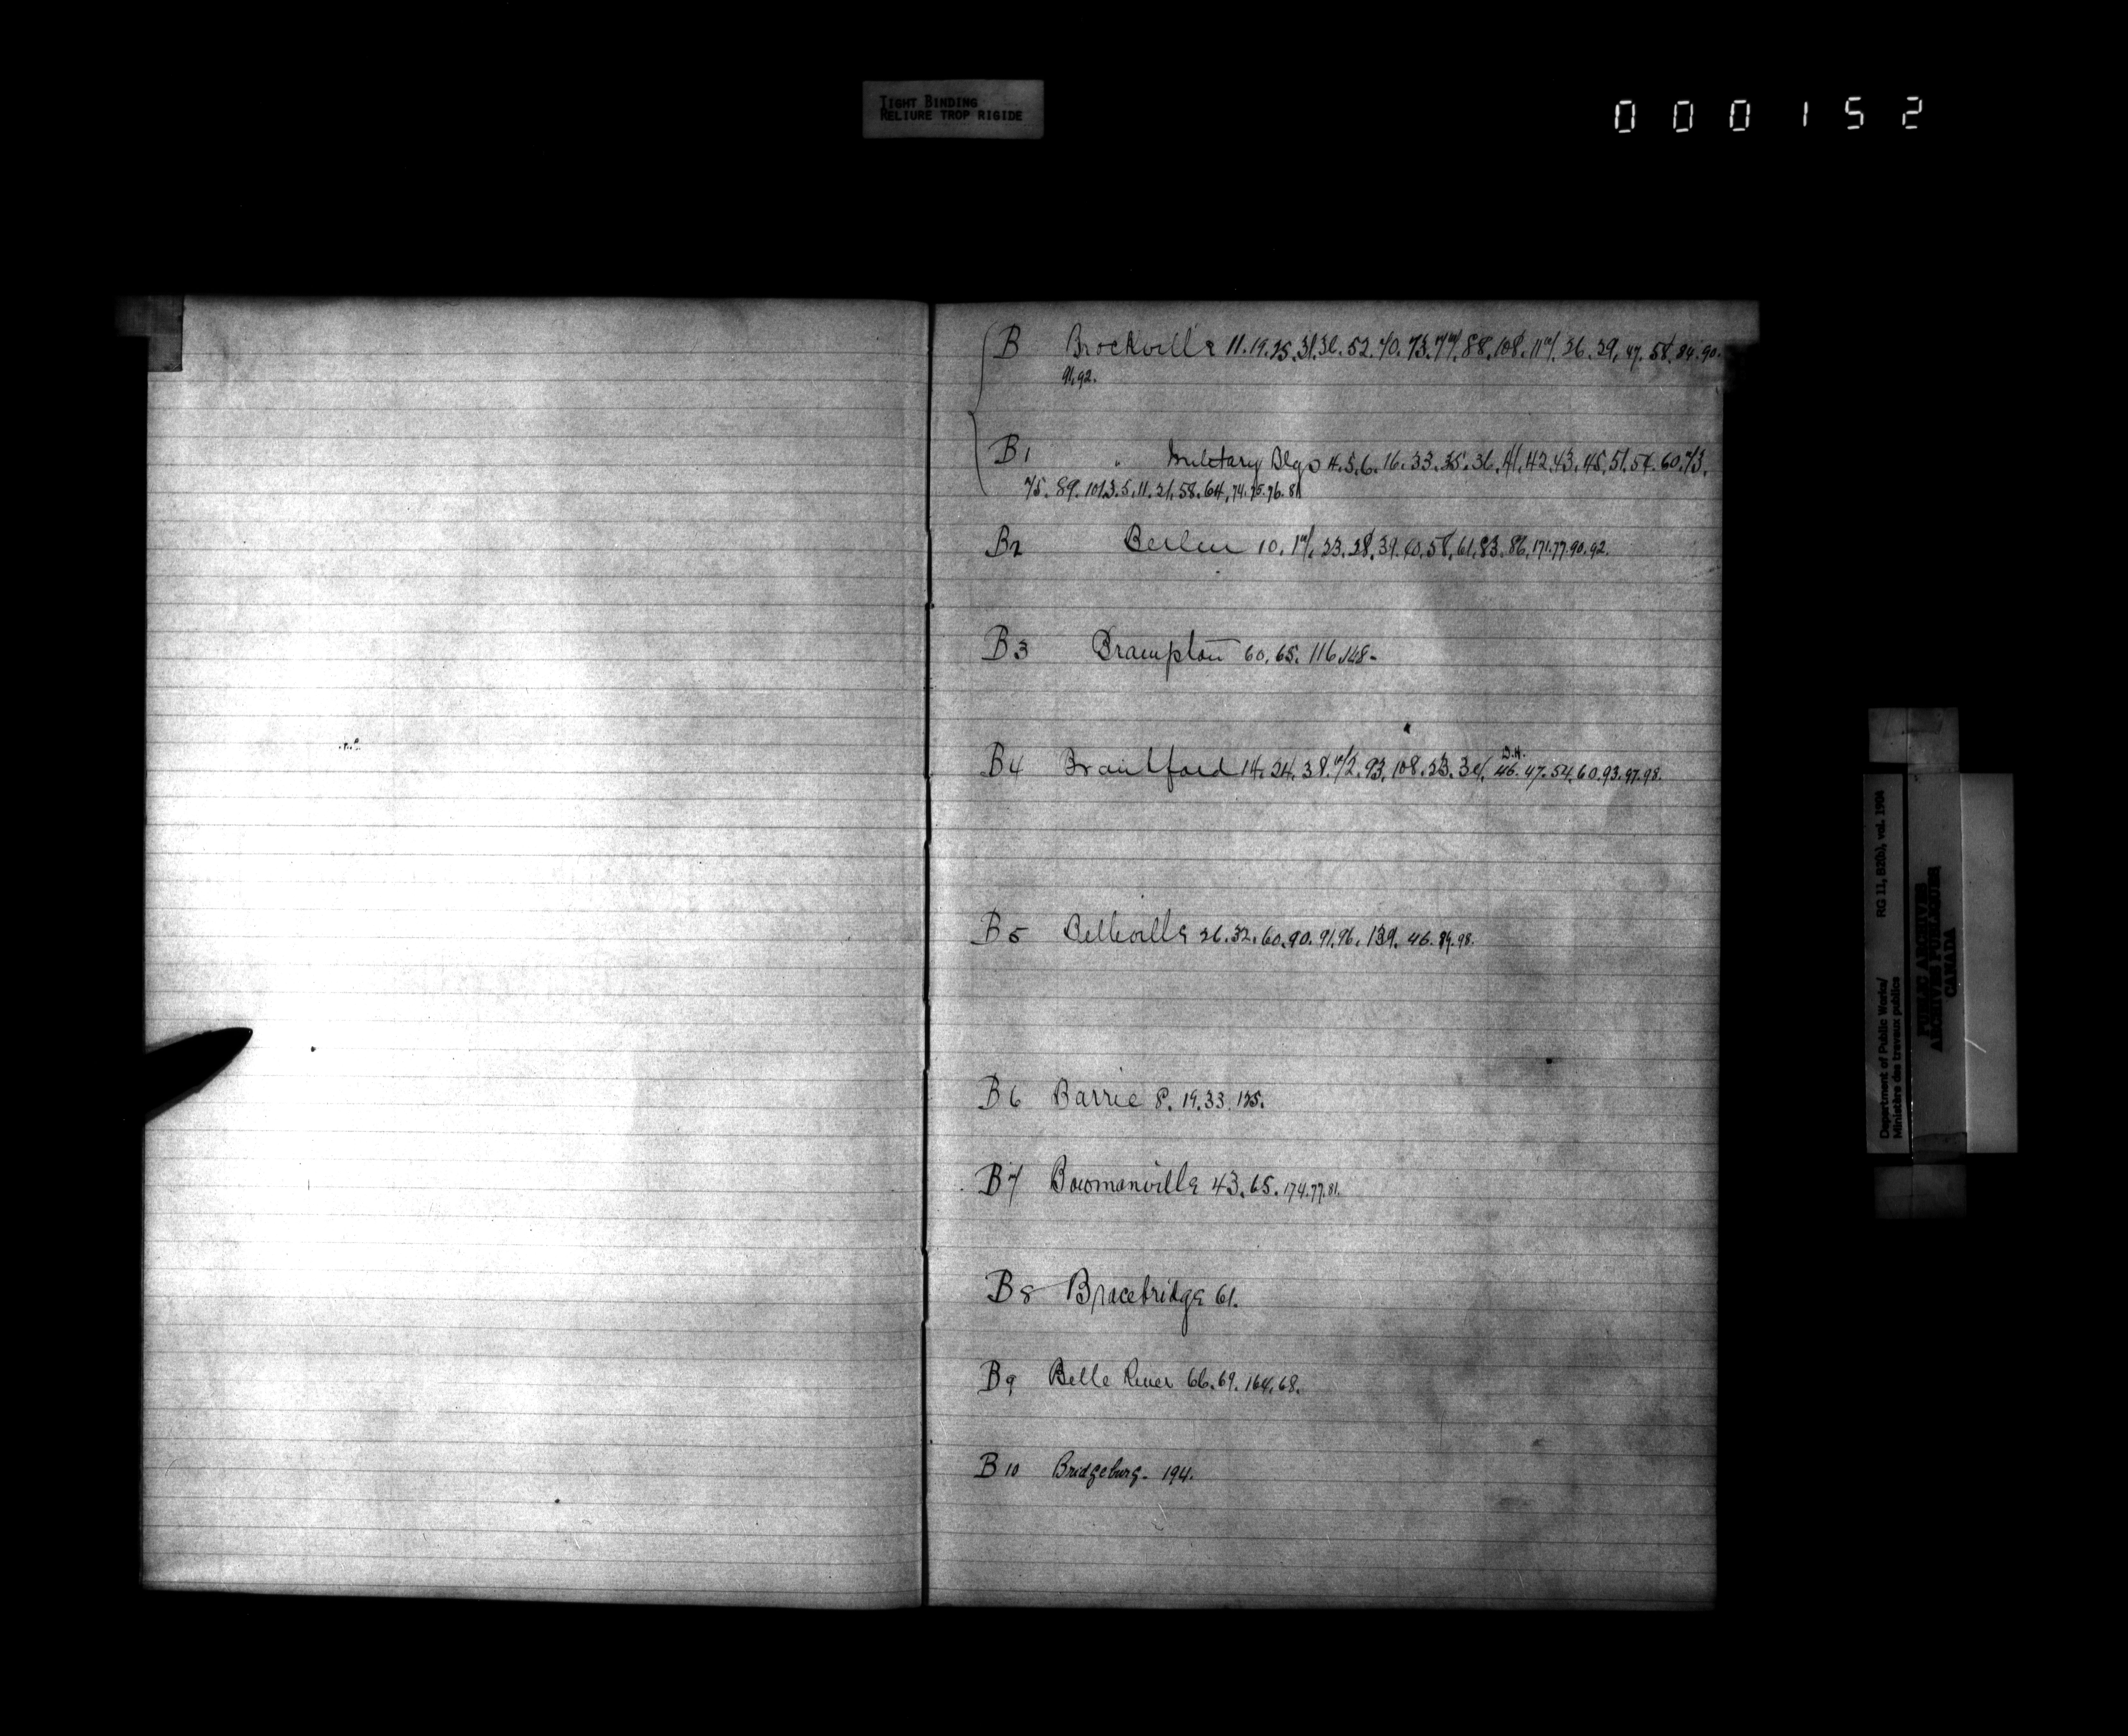 TIGHT BINDING
RELIURE TROP RIGIDE
000152
B Brockville 11.19.25.31.32.52.70.73.77.88.108.117.26.29.47.58.84.90.
91.92.
B1 " Military Blgs 4.5.6.16.33.35.36.41.42.43.45.51.54.60.73.
75.89.101.3.5.11.21.58.64.74.75.76.81
B2 Berlin 10.17.23.28.39.40.58.61.83.86.171.77.90.92.
B3 Brampton 60.65.116.148-
B4 Brantford 14.24.38.72.93.108.23.46.47.54.60.93.97.98.
B5 Belleville 26.32.60.90.91.96.139.46.89.98.
B6 Barrie 8.19.33.125.
B7 Bowmanville 43.65.174.77.81.
B8 Bracebridge 61.
B9 Belle River 66.69.164.68.
B10 Bridgeburg- 194.
Department of Public Works/ RG 11, B2(b), vol. 1904
Ministère des travaux publics
PUBLIC ARCHIVES
ARCHIVES PUBLIQUES
CANADA